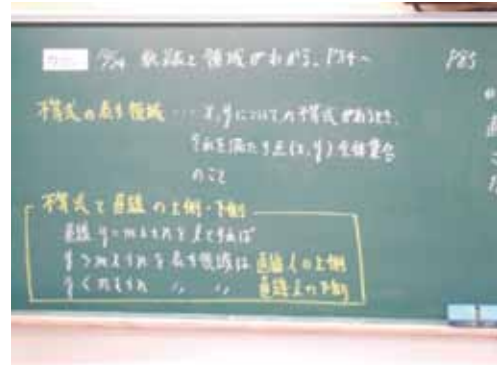 軌跡と領域がわかる。P84~
P85
不等式の表す領域…x,yについての不等式があるとき、
それを満たす点(x,y)全体集合
のこと
不等式と直線の上側・下側
直線 y=mx+nをlとすれば
y>mx+nを表す領域は直線lの上側
y<mx+n 〃 〃 直線lの下側